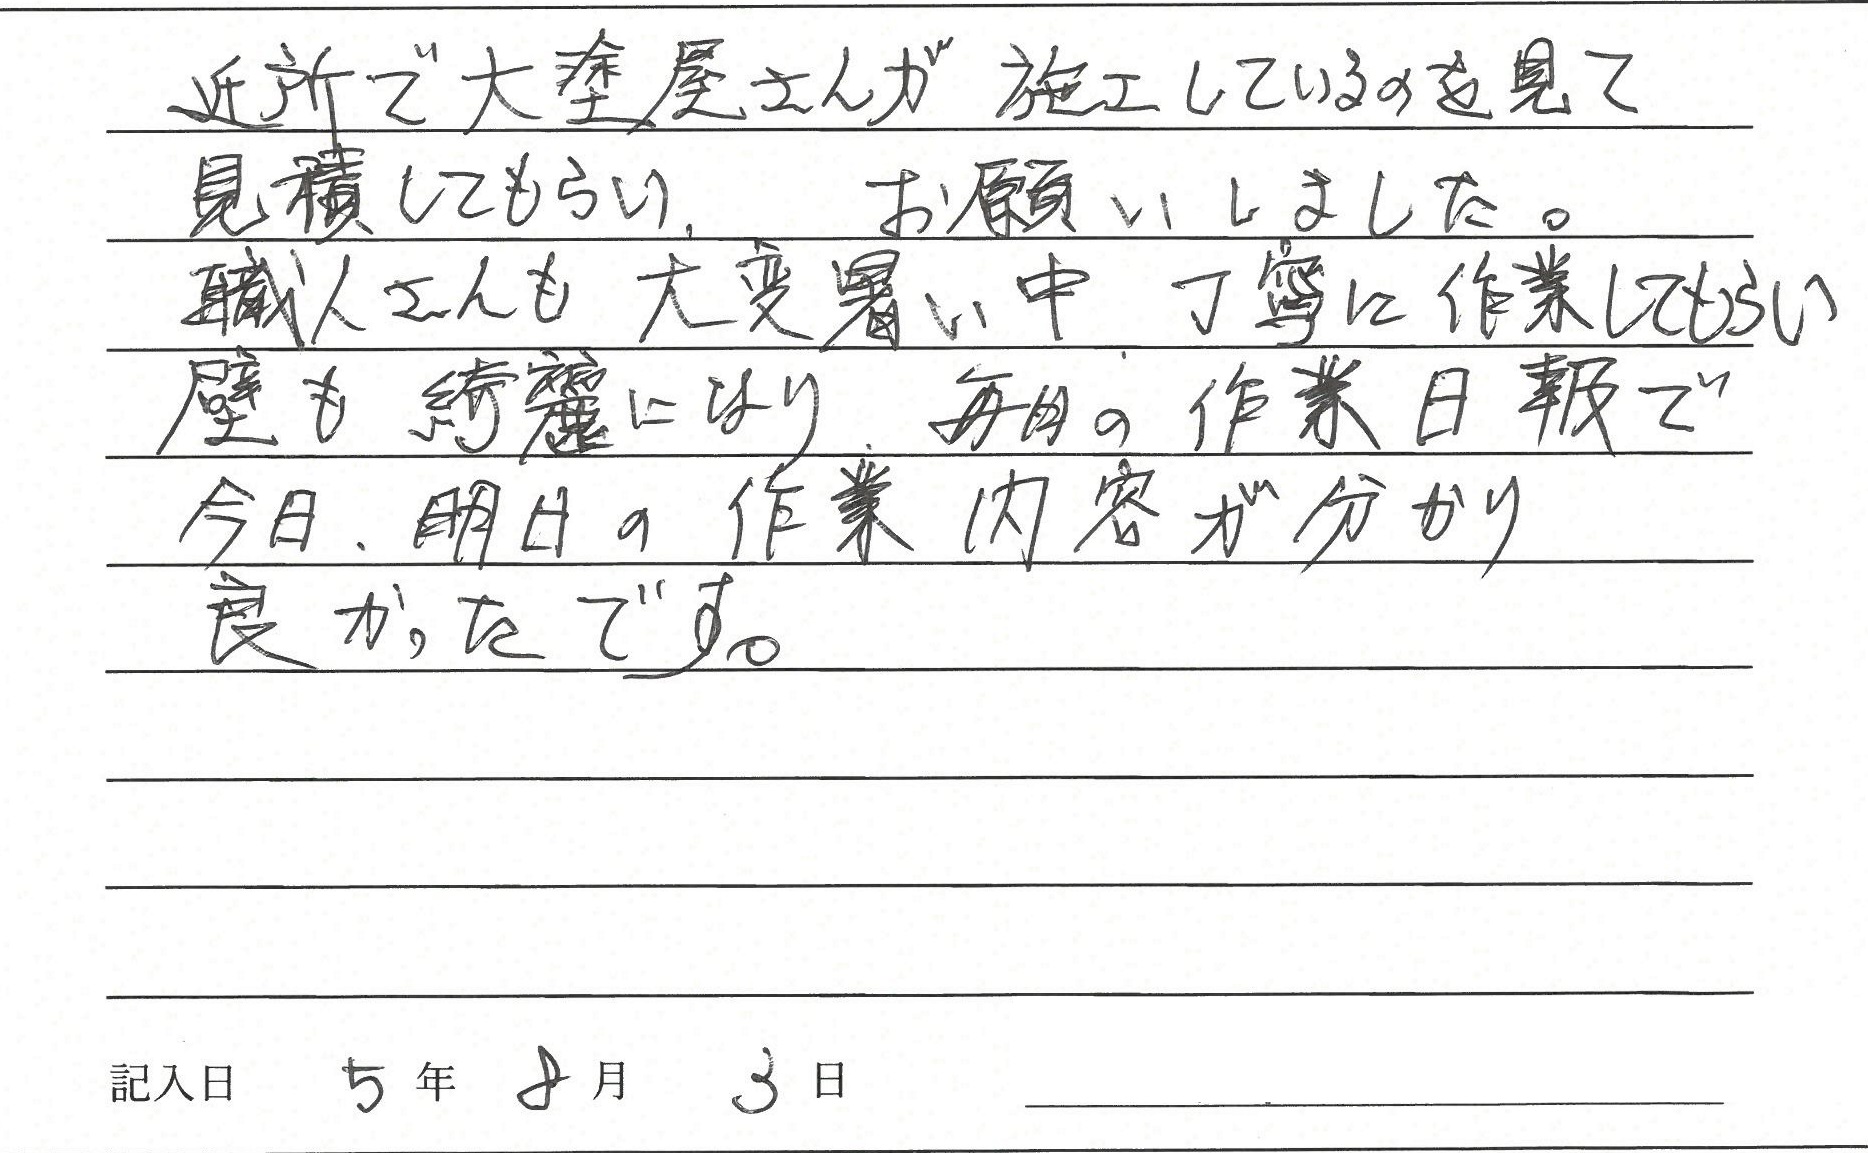 近所で大塗屋さんが施工しているのを見て
見積してもらい、お願いしました。
職人さんも大変暑い中丁寧に作業してもらい
壁も綺麗になり、毎日の作業日報で
今日、明日の作業内容が分かり
良かったです。
記入日 5年 8月 3日